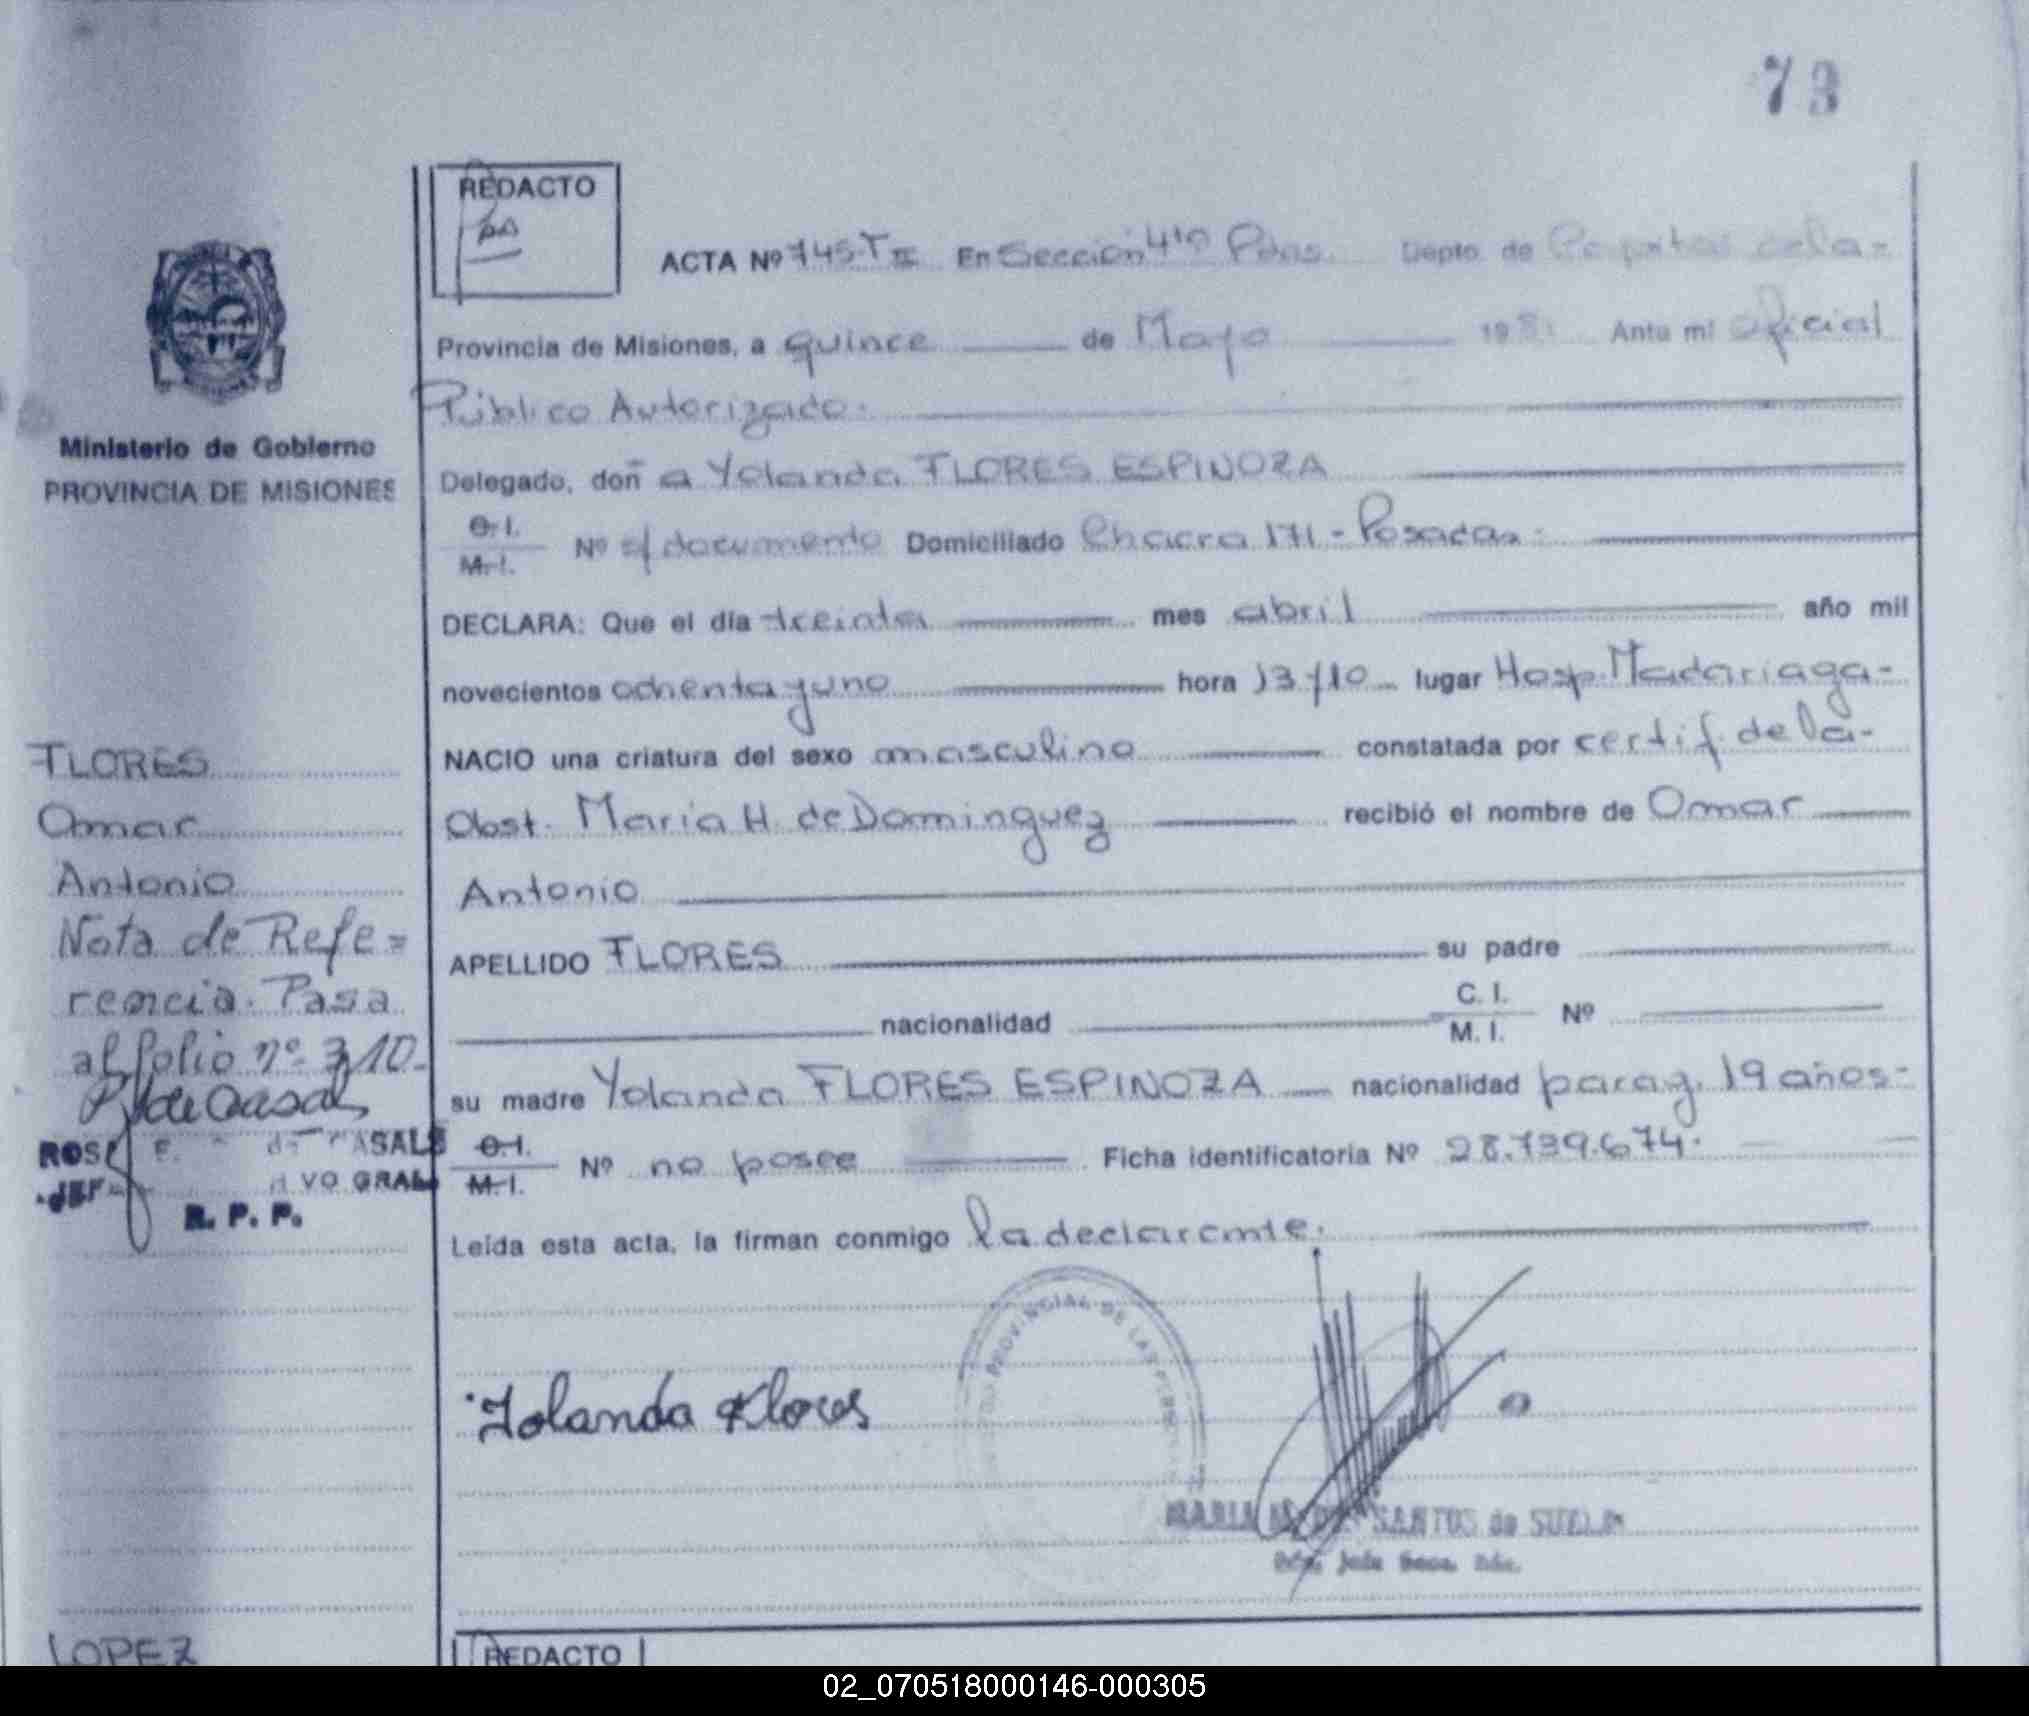 73
REDACTO
ACTA Nº 745-T II En Sección 4ta Pdas. Depto de
Provincia de Misiones, a quince de Mayo 198 Ante mi oficial
Público Autorizado.
Ministerio de Gobierno
PROVINCIA DE MISIONES
Delegado, don a Yolanda FLORES ESPINOZA
C. I.
M. I.
Nº s/documento Domiciliado Chacra 171 - Posadas.
DECLARA: Que el día treinta mes abril año mil
novecientos ochenta y uno hora 13/10 lugar Hosp. Madariaga-
NACIO una criatura del sexo masculino constatada por certif. de la-
Obst. Maria H. de Dominguez recibió el nombre de Omar
Antonio
APELLIDO FLORES su padre
nacionalidad C. I. M. I. Nº
su madre Yolanda FLORES ESPINOZA nacionalidad parag. 19 años-
C. I.
M. I.
Nº no posee Ficha identificatoria Nº 28.739.674.
Leída esta acta, la firman conmigo la declarante.
FLORES
Omar
Antonio
Nota de Refe=
rencia. Pasa
al folio nº 310-
R. P. P.
Yolanda Flores
PROVINCIAL DE LAS
MARIA SANTOS de
LOPEZ
REDACTO
02_070518000146-000305